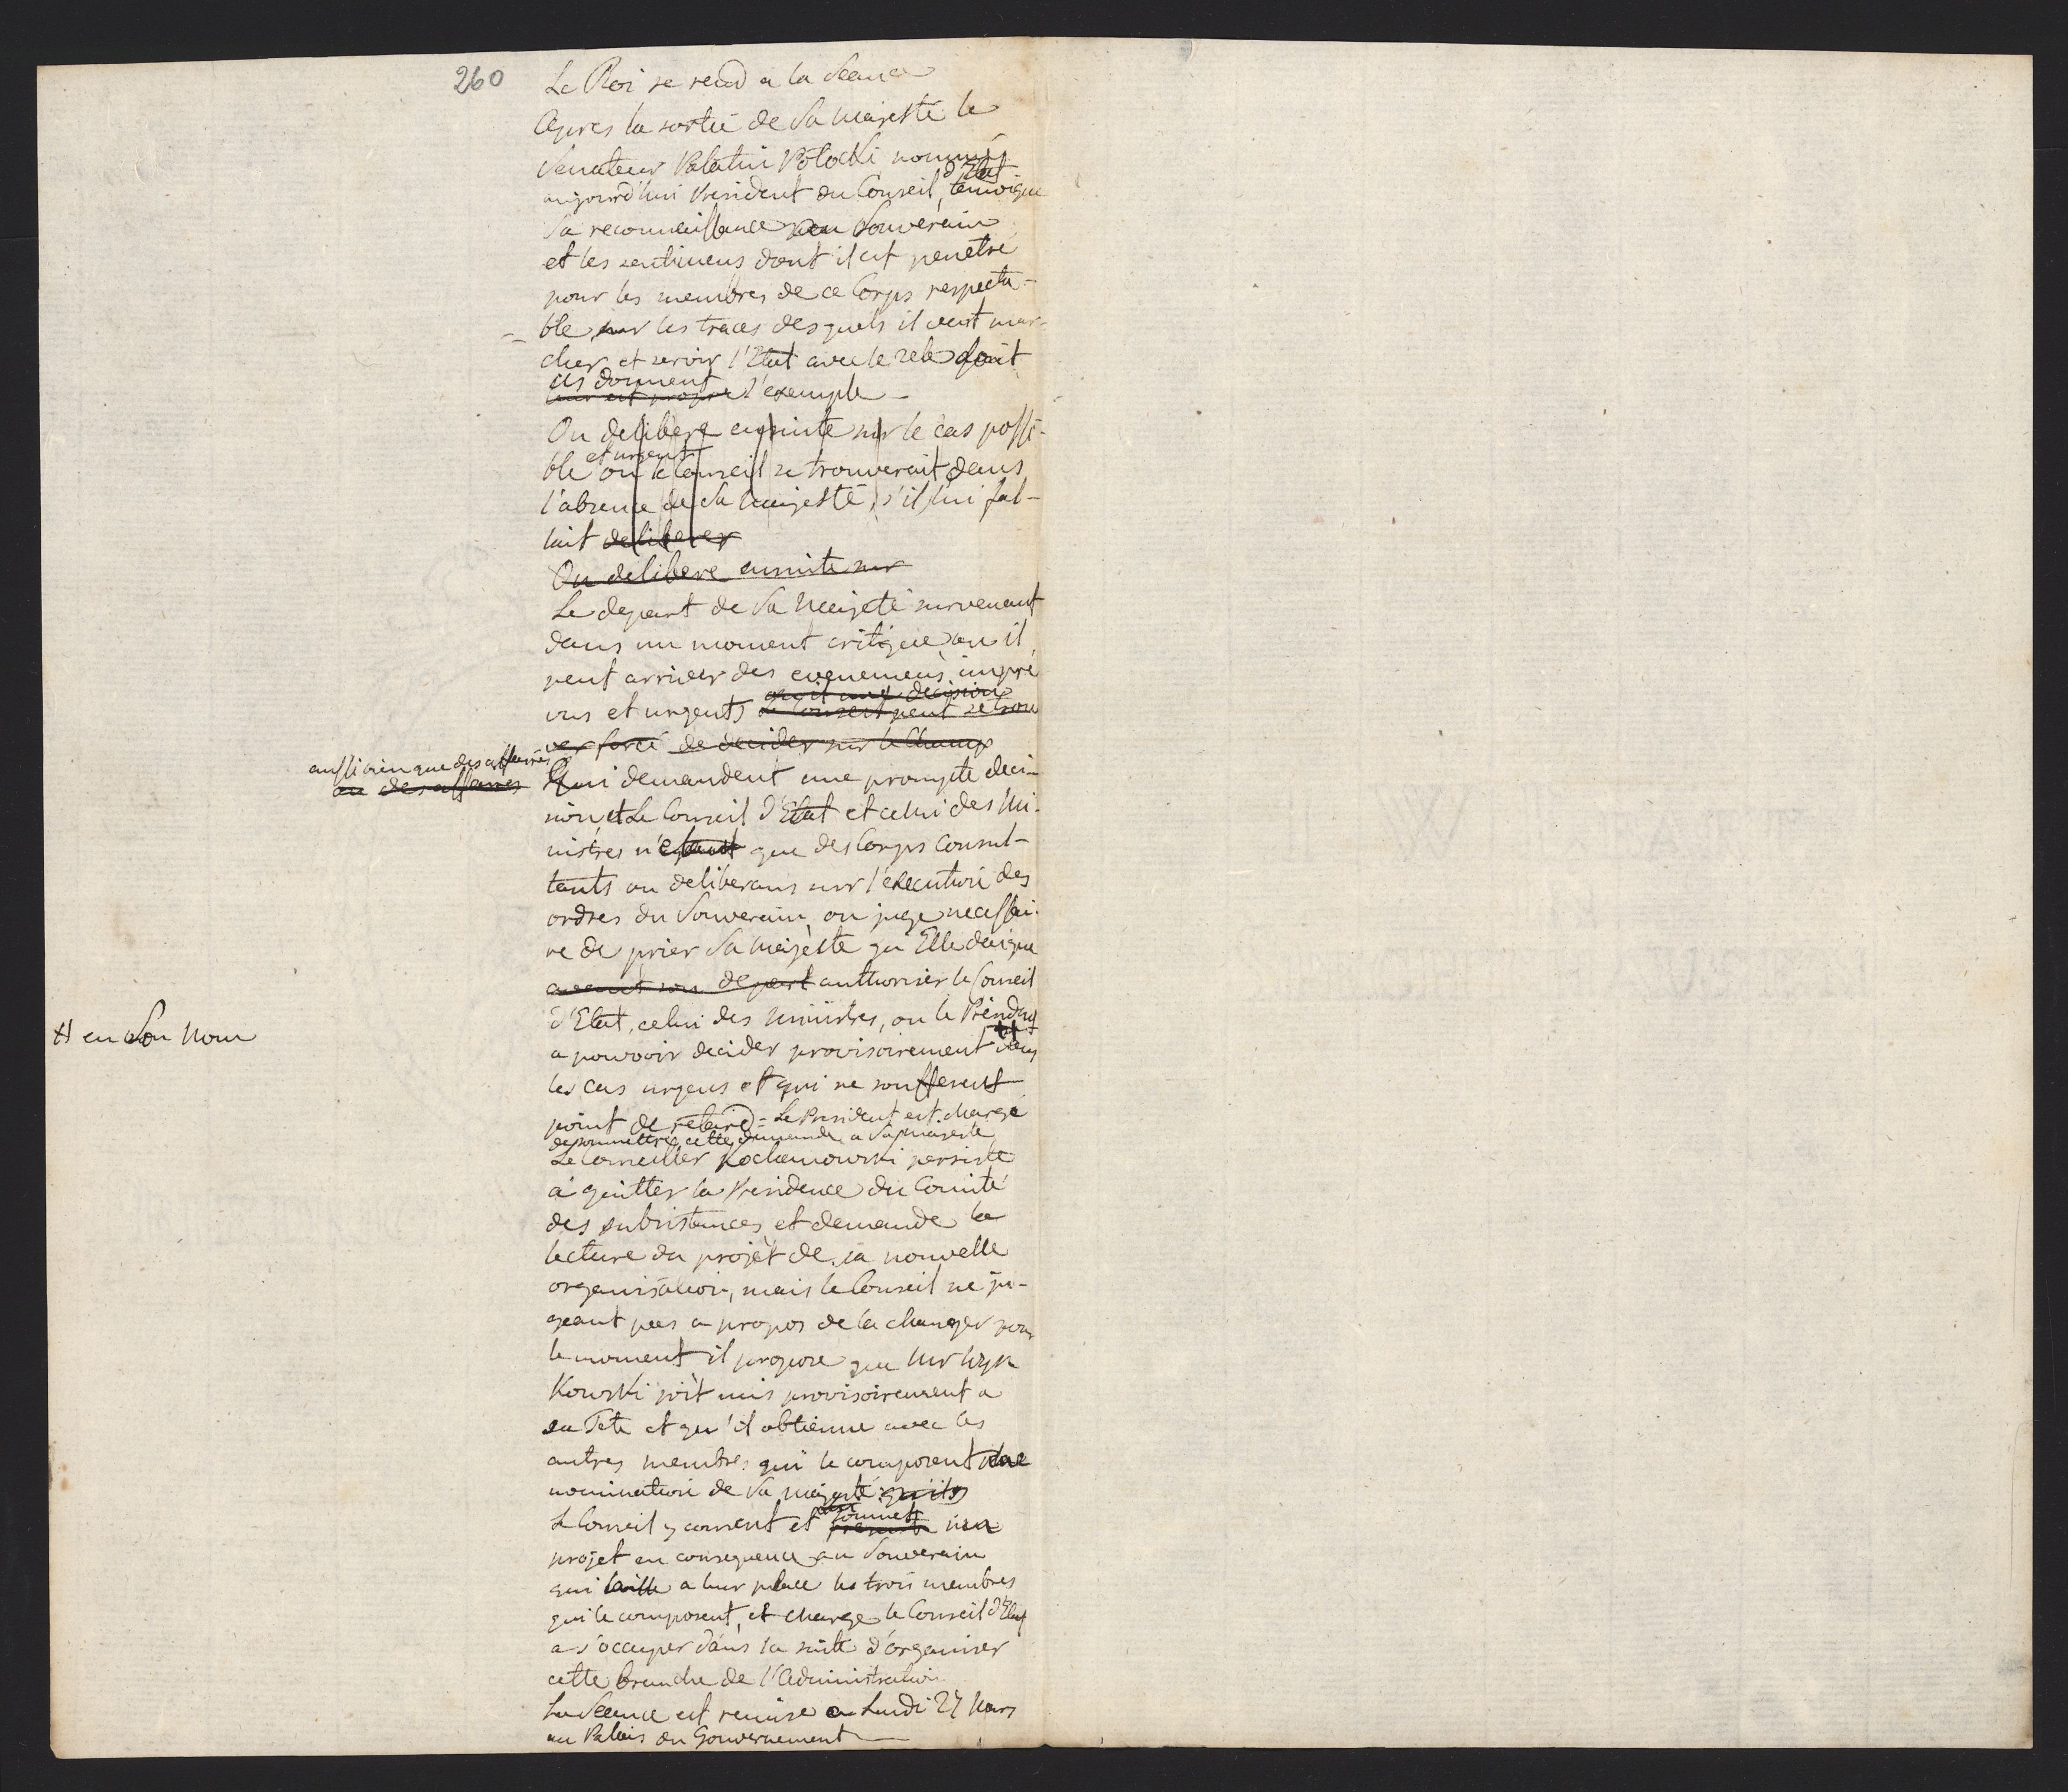 260
Le Roi se rend a la Seance
Apres la sortie de Sa Majesté le
Senateur Palatin Potocki nommé
d'Etat
aujourd'hui President du Conseil, temoigne
Sa reconnaissance au Souverain
et les sentimens dont il est penetré
pour les membres de ce Corps respecta-
ble, sur les traces desquels il veut mar-
cher et servir l'Etat avec le zele dont
ils donnent
leur est propre l'exemple -
On delibere ensuite sur le cas possi-
et urgent
ble ou le Conseil se trouverait dans
l'absence de Sa Majesté, s'il lui fal-
lait deliberer
On delibere ensuite sur
Le depart de Sa Majeté survenant
dans un moment critique ou il
peut arriver des evenemens impre
qu'il une decision
vus et urgents le Conseil peut se trou
ver forcé de decider sur le Champ
aussi bien que des affaires
ou des affaires
Qui demandent une prompte deci-
sion, et Le Conseil d'Etat et celui des Mi-
nistres n'etant que des Corps Consul-
tants ou deliberans sur l'execution des
ordres du Souverain, on juge necessai-
re de prier Sa Majesté qu'Elle daigne
avant son depart authoriser le Conseil
d'Etat, celui des Ministres, ou le Présidnt
# en Son Nom
a pouvoir decider provisoirement # dans
les cas urgens et qui ne soufferent
point de retard = Le President est chargé
de soumettre cette demande a Sa Majesté
Le Conseiller Kochanowski persiste
à quitter la Presidence du Comité
des subsistances, et demande la
lecture du projet de sa nouvelle
organisation, mais le Conseil ne ju-
geant pas a propos de la changer pour
le moment il propose que Mr
Kowski soit mis provisoirement a
sa Tete et qu'il obtienne avec les
autres membres qui le composent une
nomination de Sa Majesté
Le Conseil y consent et soumet
presente un
projet en consequence au Souverain
qui laisse a leur place les trois membres
qui le composent, et charge le Conseil d'Etat
a s'occuper dans la suite d'organiser
cette branche de l'Administration
La Seance est remise a Lundi 27 Mars
au Palais du Gouvernement